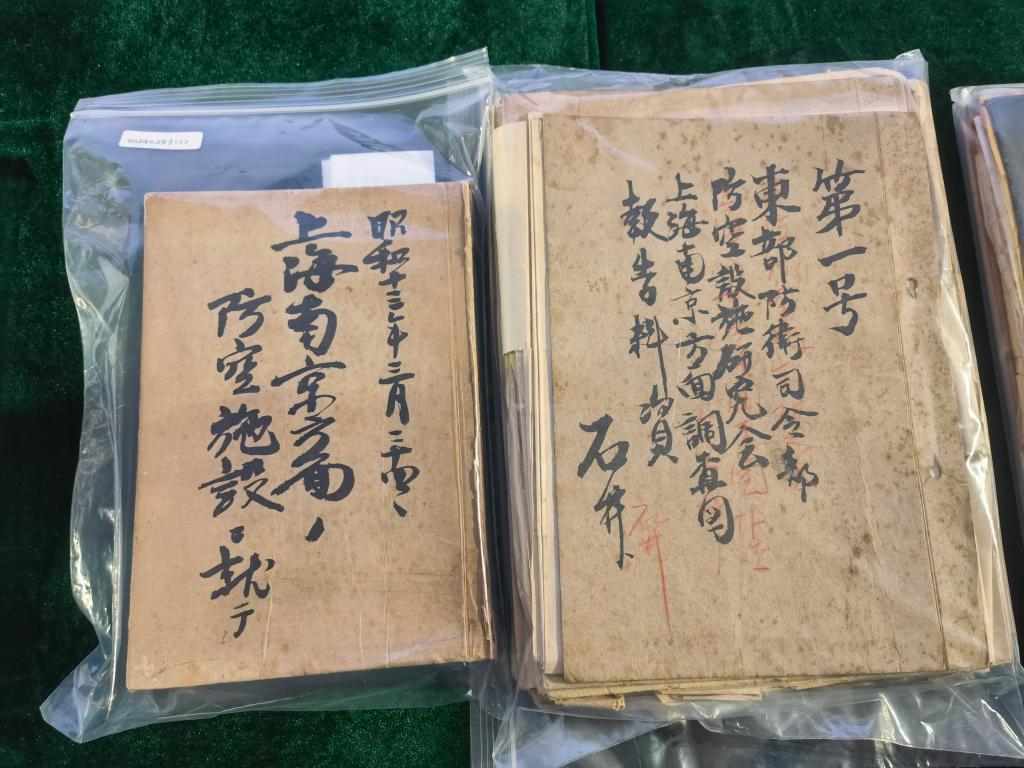 昭和十三年三月二十四日
上海南京方面ノ
防空施設ニ就テ
第一号
東部防衛司令部
防空設施研究会
上海南京方面調査図
報告料資
石井
石井